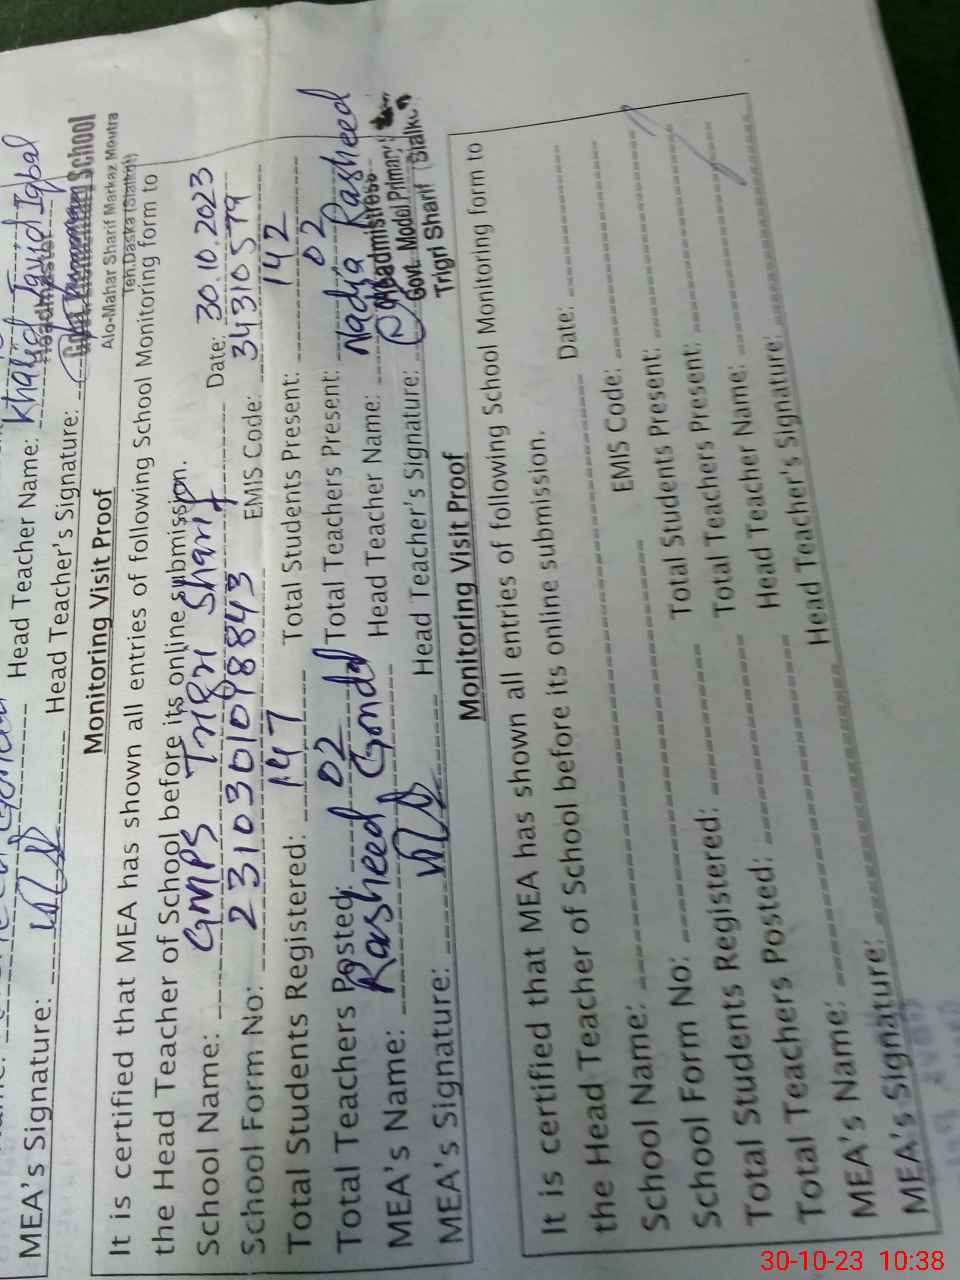 Head Teacher Name: Khalid Javid Iqbal
Headmaster
MEA's Signature: Head Teacher's Signature:
School
Alo-Mahar Sharif Markaz Moutra
Teh.Daska (Sialkot)
Monitoring Visit Proof
It is certified that MEA has shown all entries of following School Monitoring form to
the Head Teacher of School before its online submission.
School Name: GMPS Trigri Sharif Date: 30.10.2023
School Form No: EMIS Code: 34310579
Total Students Registered: 147 Total Students Present: 142
Total Teachers Posted: 02 Total Teachers Present: 02
MEA's Name: Rasheed Gondal Head Teacher Name: Nadia Rasheed
MEA's Signature: Head Teacher's Signature:
Headmistress
Govt. Model Primary
Trigri Sharif (Sialkot)
Monitoring Visit Proof
It is certified that MEA has shown all entries of following School Monitoring form to
the Head Teacher of School before its online submission.
School Name: Date:
School Form No: EMIS Code:
Total Students Registered: Total Students Present:
Total Teachers Posted: Total Teachers Present:
MEA's Name: Head Teacher Name:
MEA's Signature: Head Teacher's Signature:
30-10-23 10:38